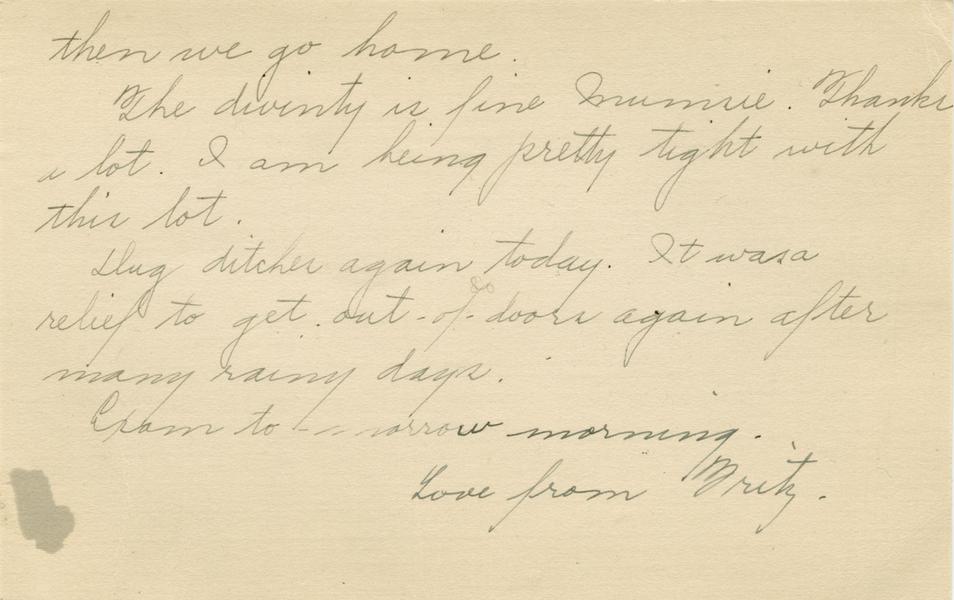 then we go home.
The divinty is fine Mumsie. Thanks
a lot. I am being pretty tight with
this lot.
Dug ditches again today. It was a
relief to get out-of-doors again after
many rainy days.
Exam to-morrow morning.
Love from Fritz.